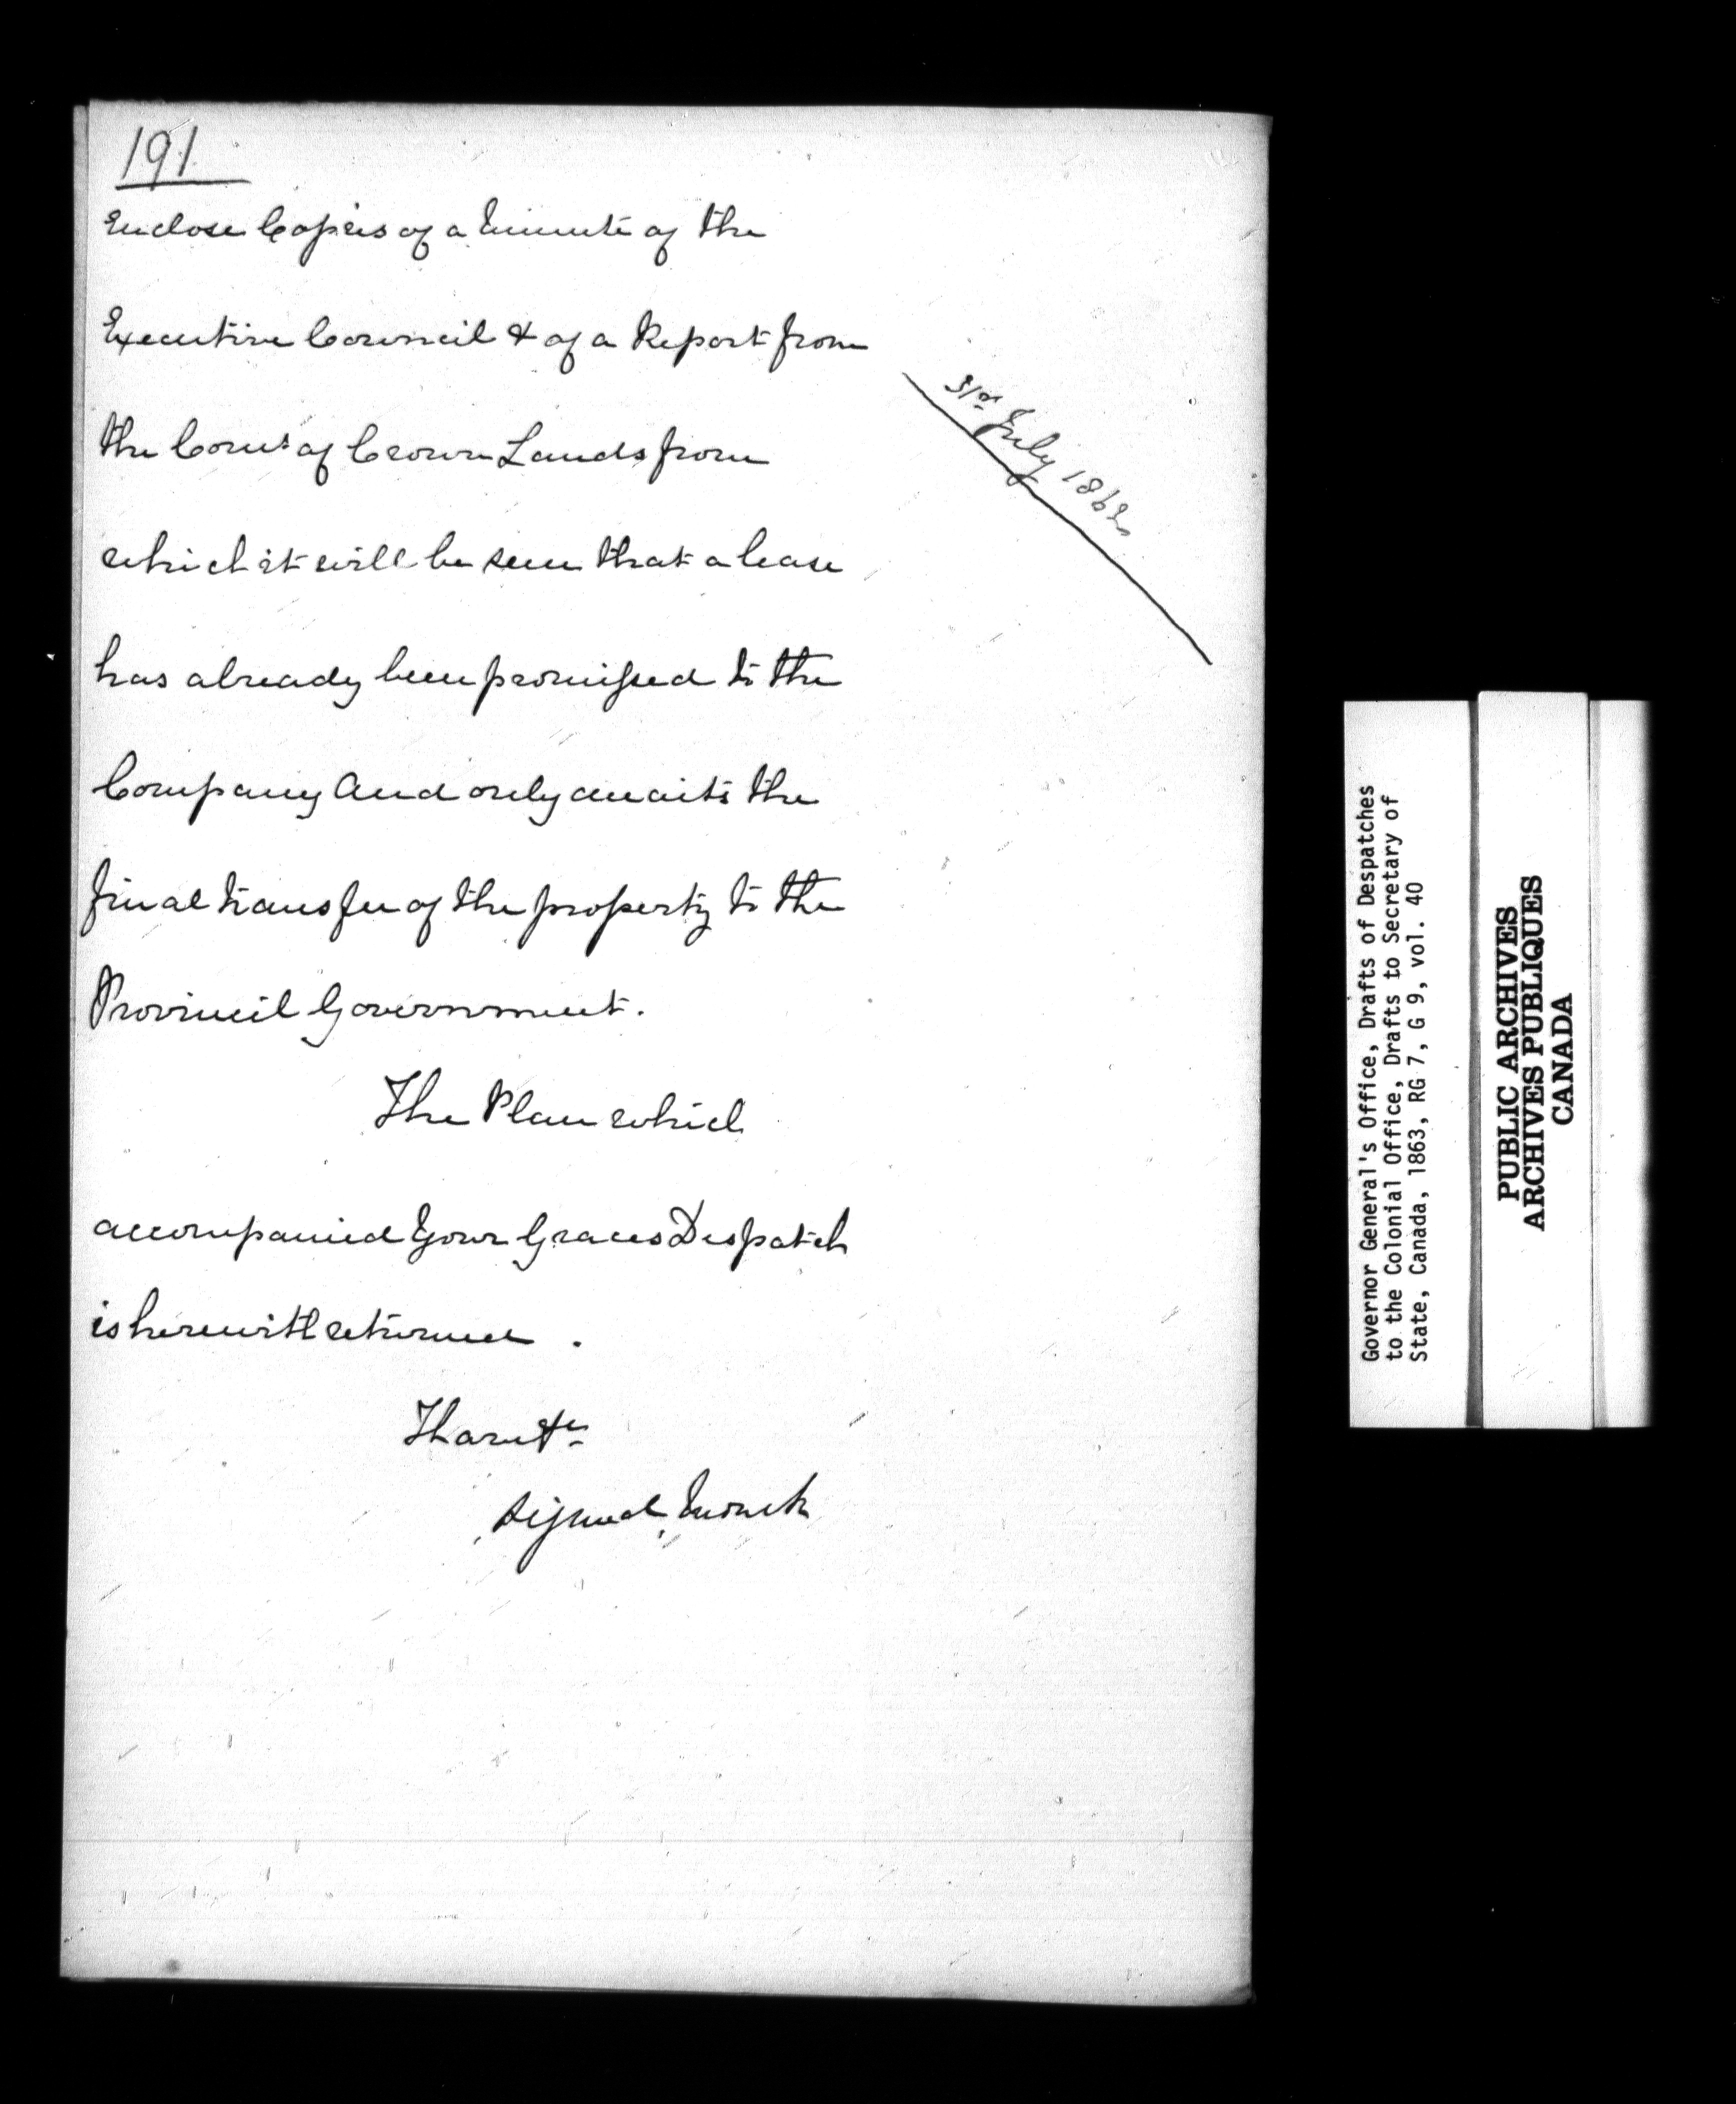 191
Enclose Copies of a Minute of the
Executive Council & of a Report from
31st July 1862
the Comr of Crown Lands from
which it will be seen that a lease
has already been promised to the
Company and only awaits the
final transfer of the property to the
Provincil Government.
The Plan which
accompanied Your Graces Despatch
is herewith returned.
I have &c
Signed, Monck
Governor General's Office, Drafts of Despatches
to the Colonial Office, Drafts to Secretary of
State, Canada, 1863, RG 7, G 9, vol. 40
PUBLIC ARCHIVES
ARCHIVES PUBLIQUES
CANADA